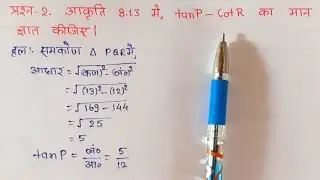 प्रश्न-2. आकृति 8.13 में, tanP-CotR का मान
ज्ञात कीजिए।
हल:- समकोण Δ PQR में,
आधार = √(कर्ण)²-(लं०)²
= √(13)²-(12)²
= √169-144
= √25
= 5
tanP = लं०/आ० = 5/12